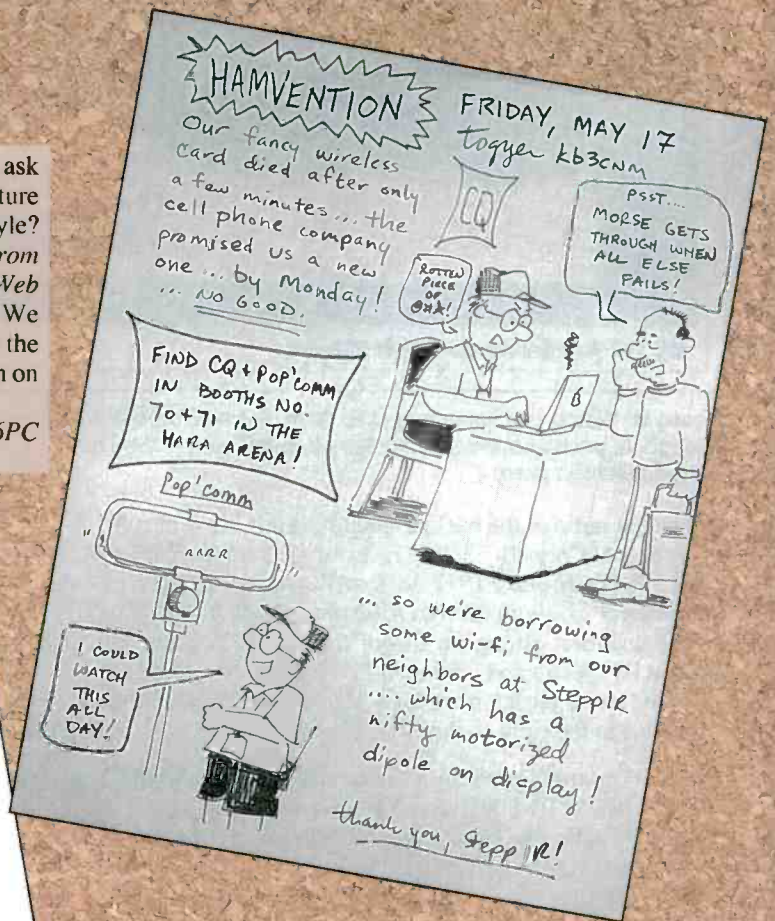 ask
ture
yle?
rom
Web
We
the
n on
6PC
HAMVENTION
FRIDAY, MAY 17
kb3cnm
Our fancy wireless
card died after only
a few minutes... the
cell phone company
promised us a new
one... by Monday!
... NO GOOD.
CQ
ROTTEN
PIECE
OF
@#&!
PSST....
MORSE GETS
THROUGH WHEN
ALL ELSE
FAILS!
FIND CQ + POP'COMM
IN BOOTHS NO.
70+71 IN THE
HARA ARENA!
Pop'comm
RRRR
I COULD
WATCH
THIS
ALL
DAY!
... so we're borrowing
some wi-fi from our
neighbors at SteppIR
.... which has a
nifty motorized
dipole on display!
thank you, SteppIR!